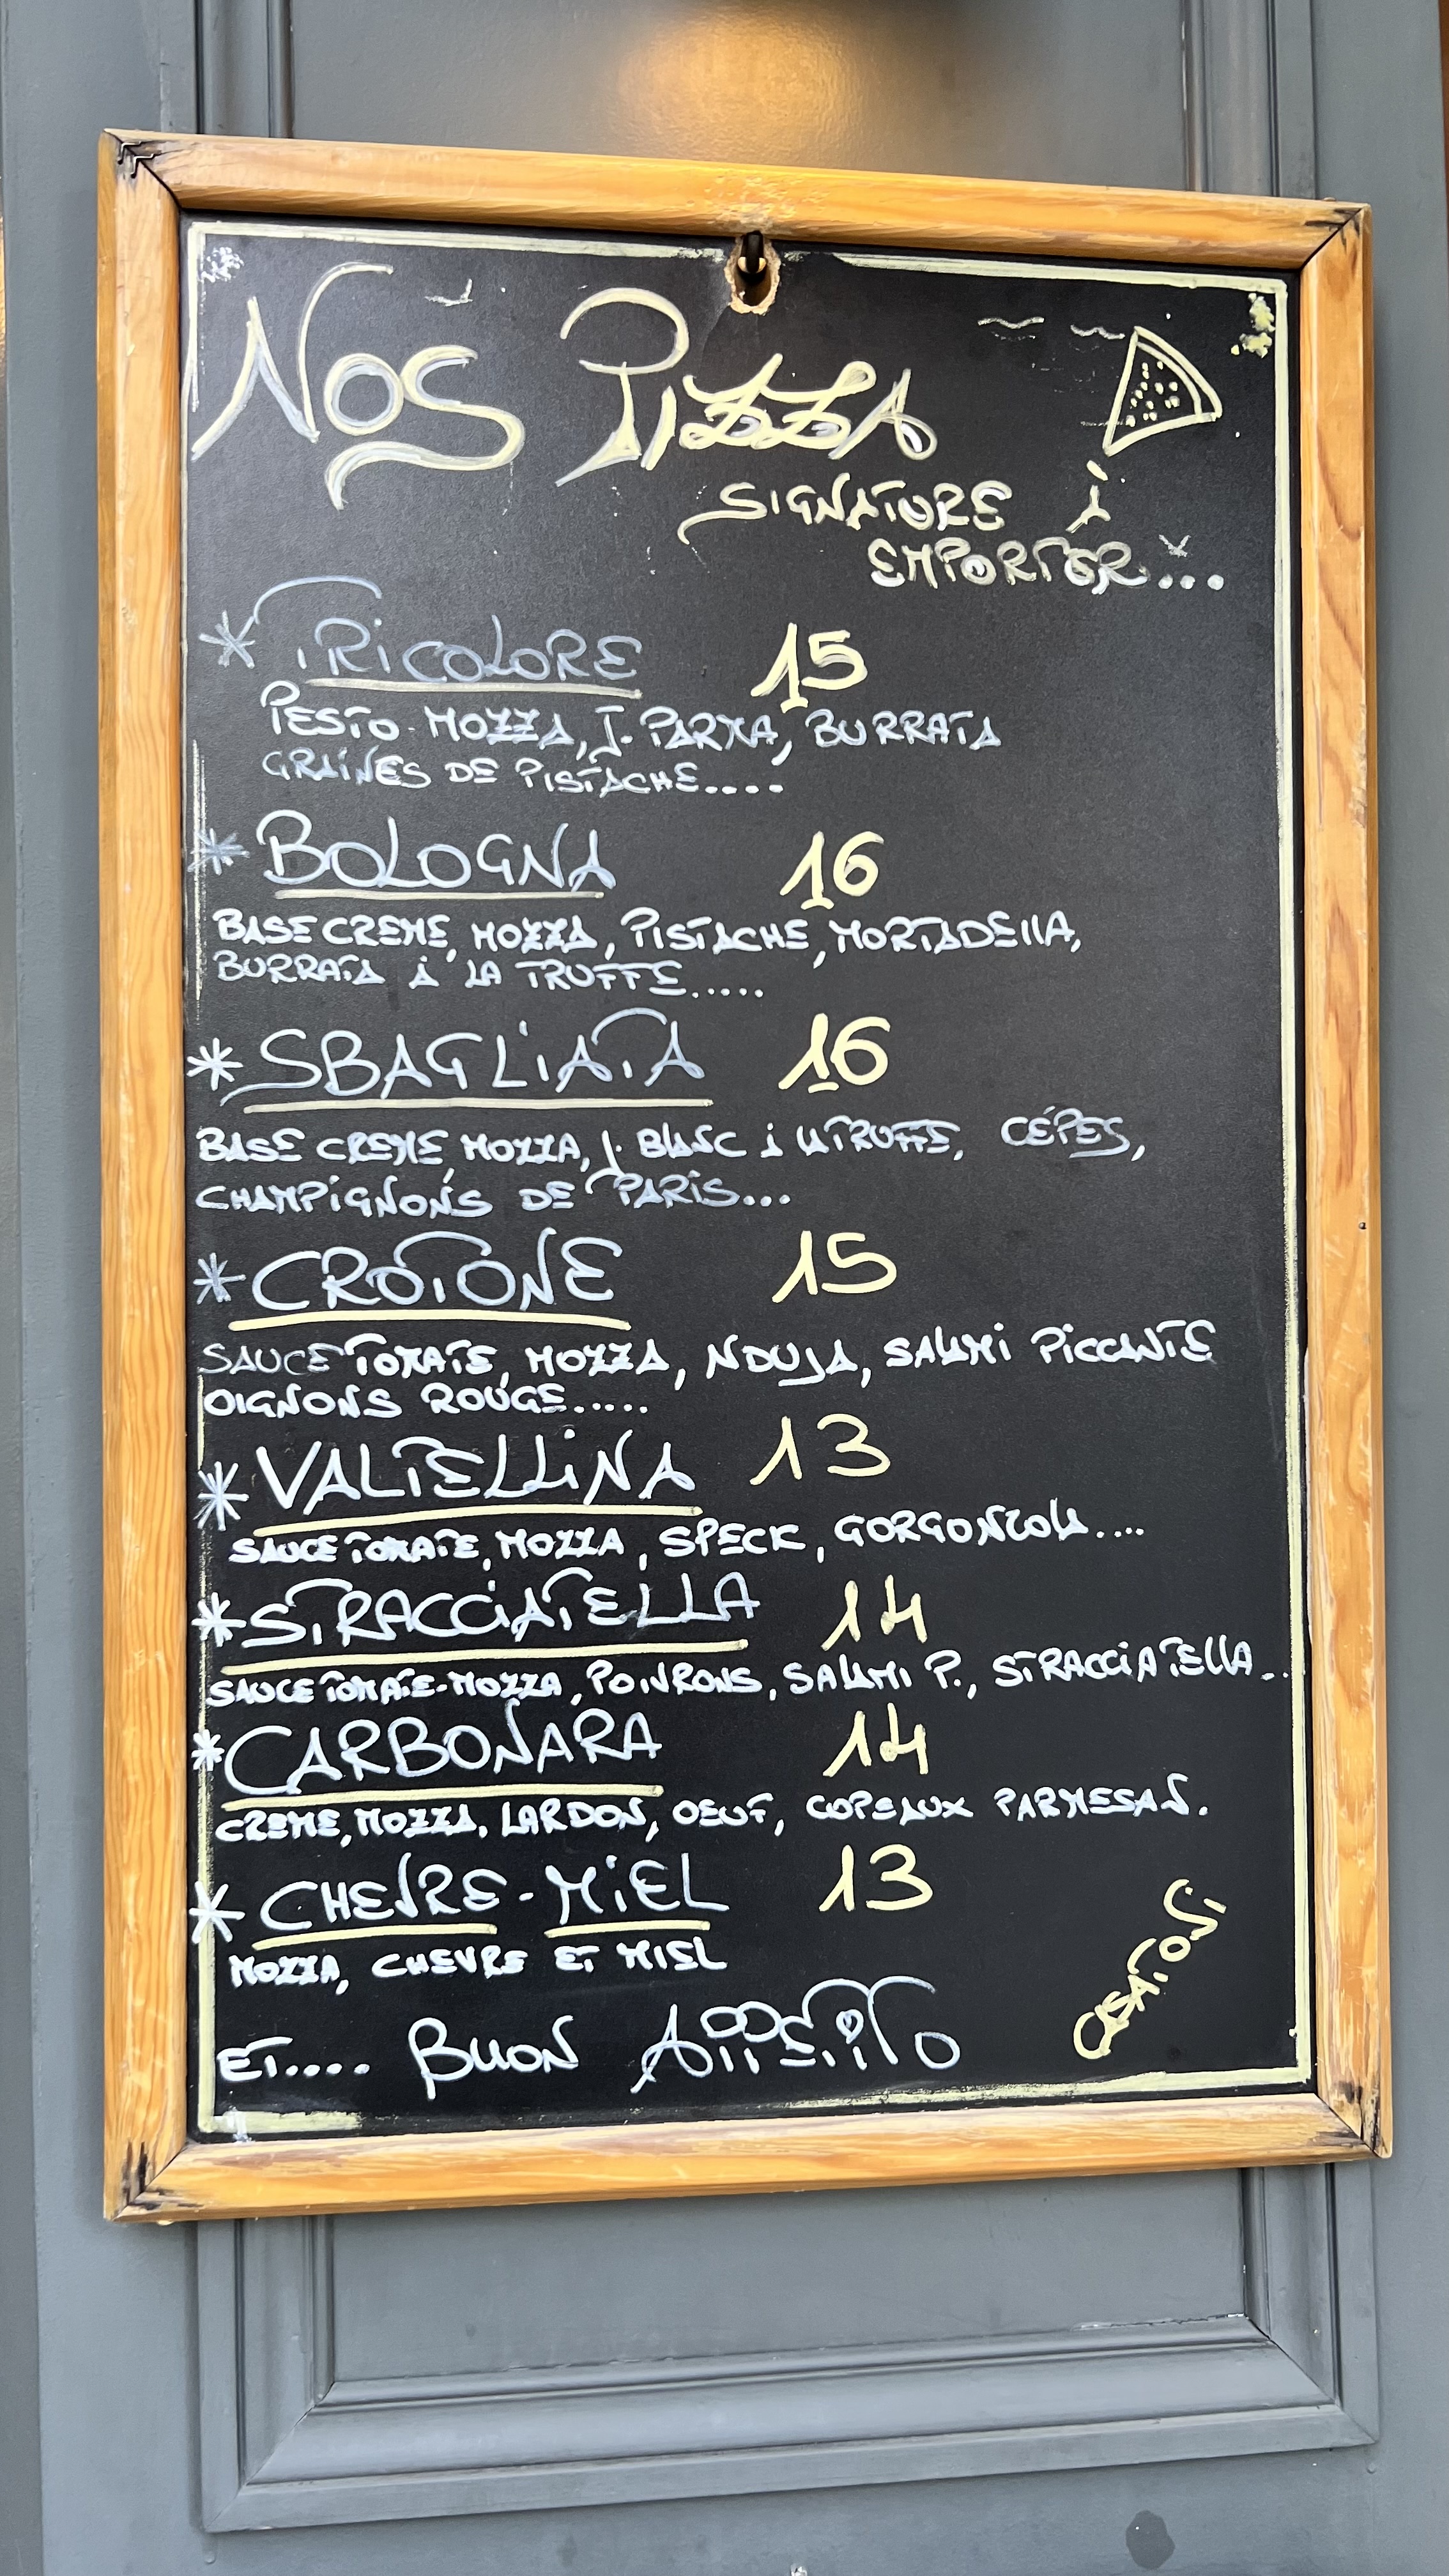 NOS PIZZA
SIGNATURE À
EMPORTER...
* TRICOLORE 15
PESTO-MOZZA, J. PARMA, BURRATA
GRAINES DE PISTACHE....
* BOLOGNA 16
BASE CREME, MOZZA, PISTACHE, MORTADELLA,
BURRATA À LA TRUFFE.....
* SBAGLIATA 16
BASE CREME, MOZZA, J. BLANC À LA TRUFFE, CÉPES,
CHAMPIGNONS DE PARIS...
* CROTONE 15
SAUCE TOMATE, MOZZA, NDUJA, SALAMI PICCANTE
OIGNONS ROUGE.....
* VALTELLINA 13
SAUCE TOMATE, MOZZA, SPECK, GORGONZOLA....
* STRACCIATELLA 14
SAUCE TOMATE-MOZZA, POIVRONS, SALAMI P., STRACCIATELLA..
* CARBONARA 14
CREME, MOZZA, LARDON, OEUF, COPEAUX PARMESAN.
* CHEVRE-MIEL 13
MOZZA, CHEVRE ET MIEL
ET.... BUON APPETITO